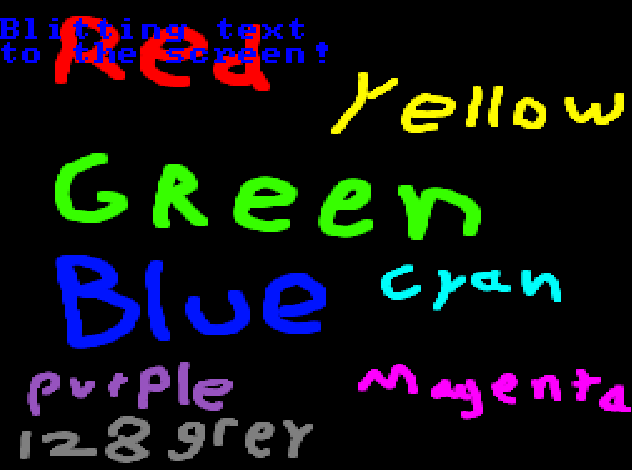 Blitting text
to the screen!
Red
Yellow
GReen
Blue
cyan
purple
Magenta
128 grey